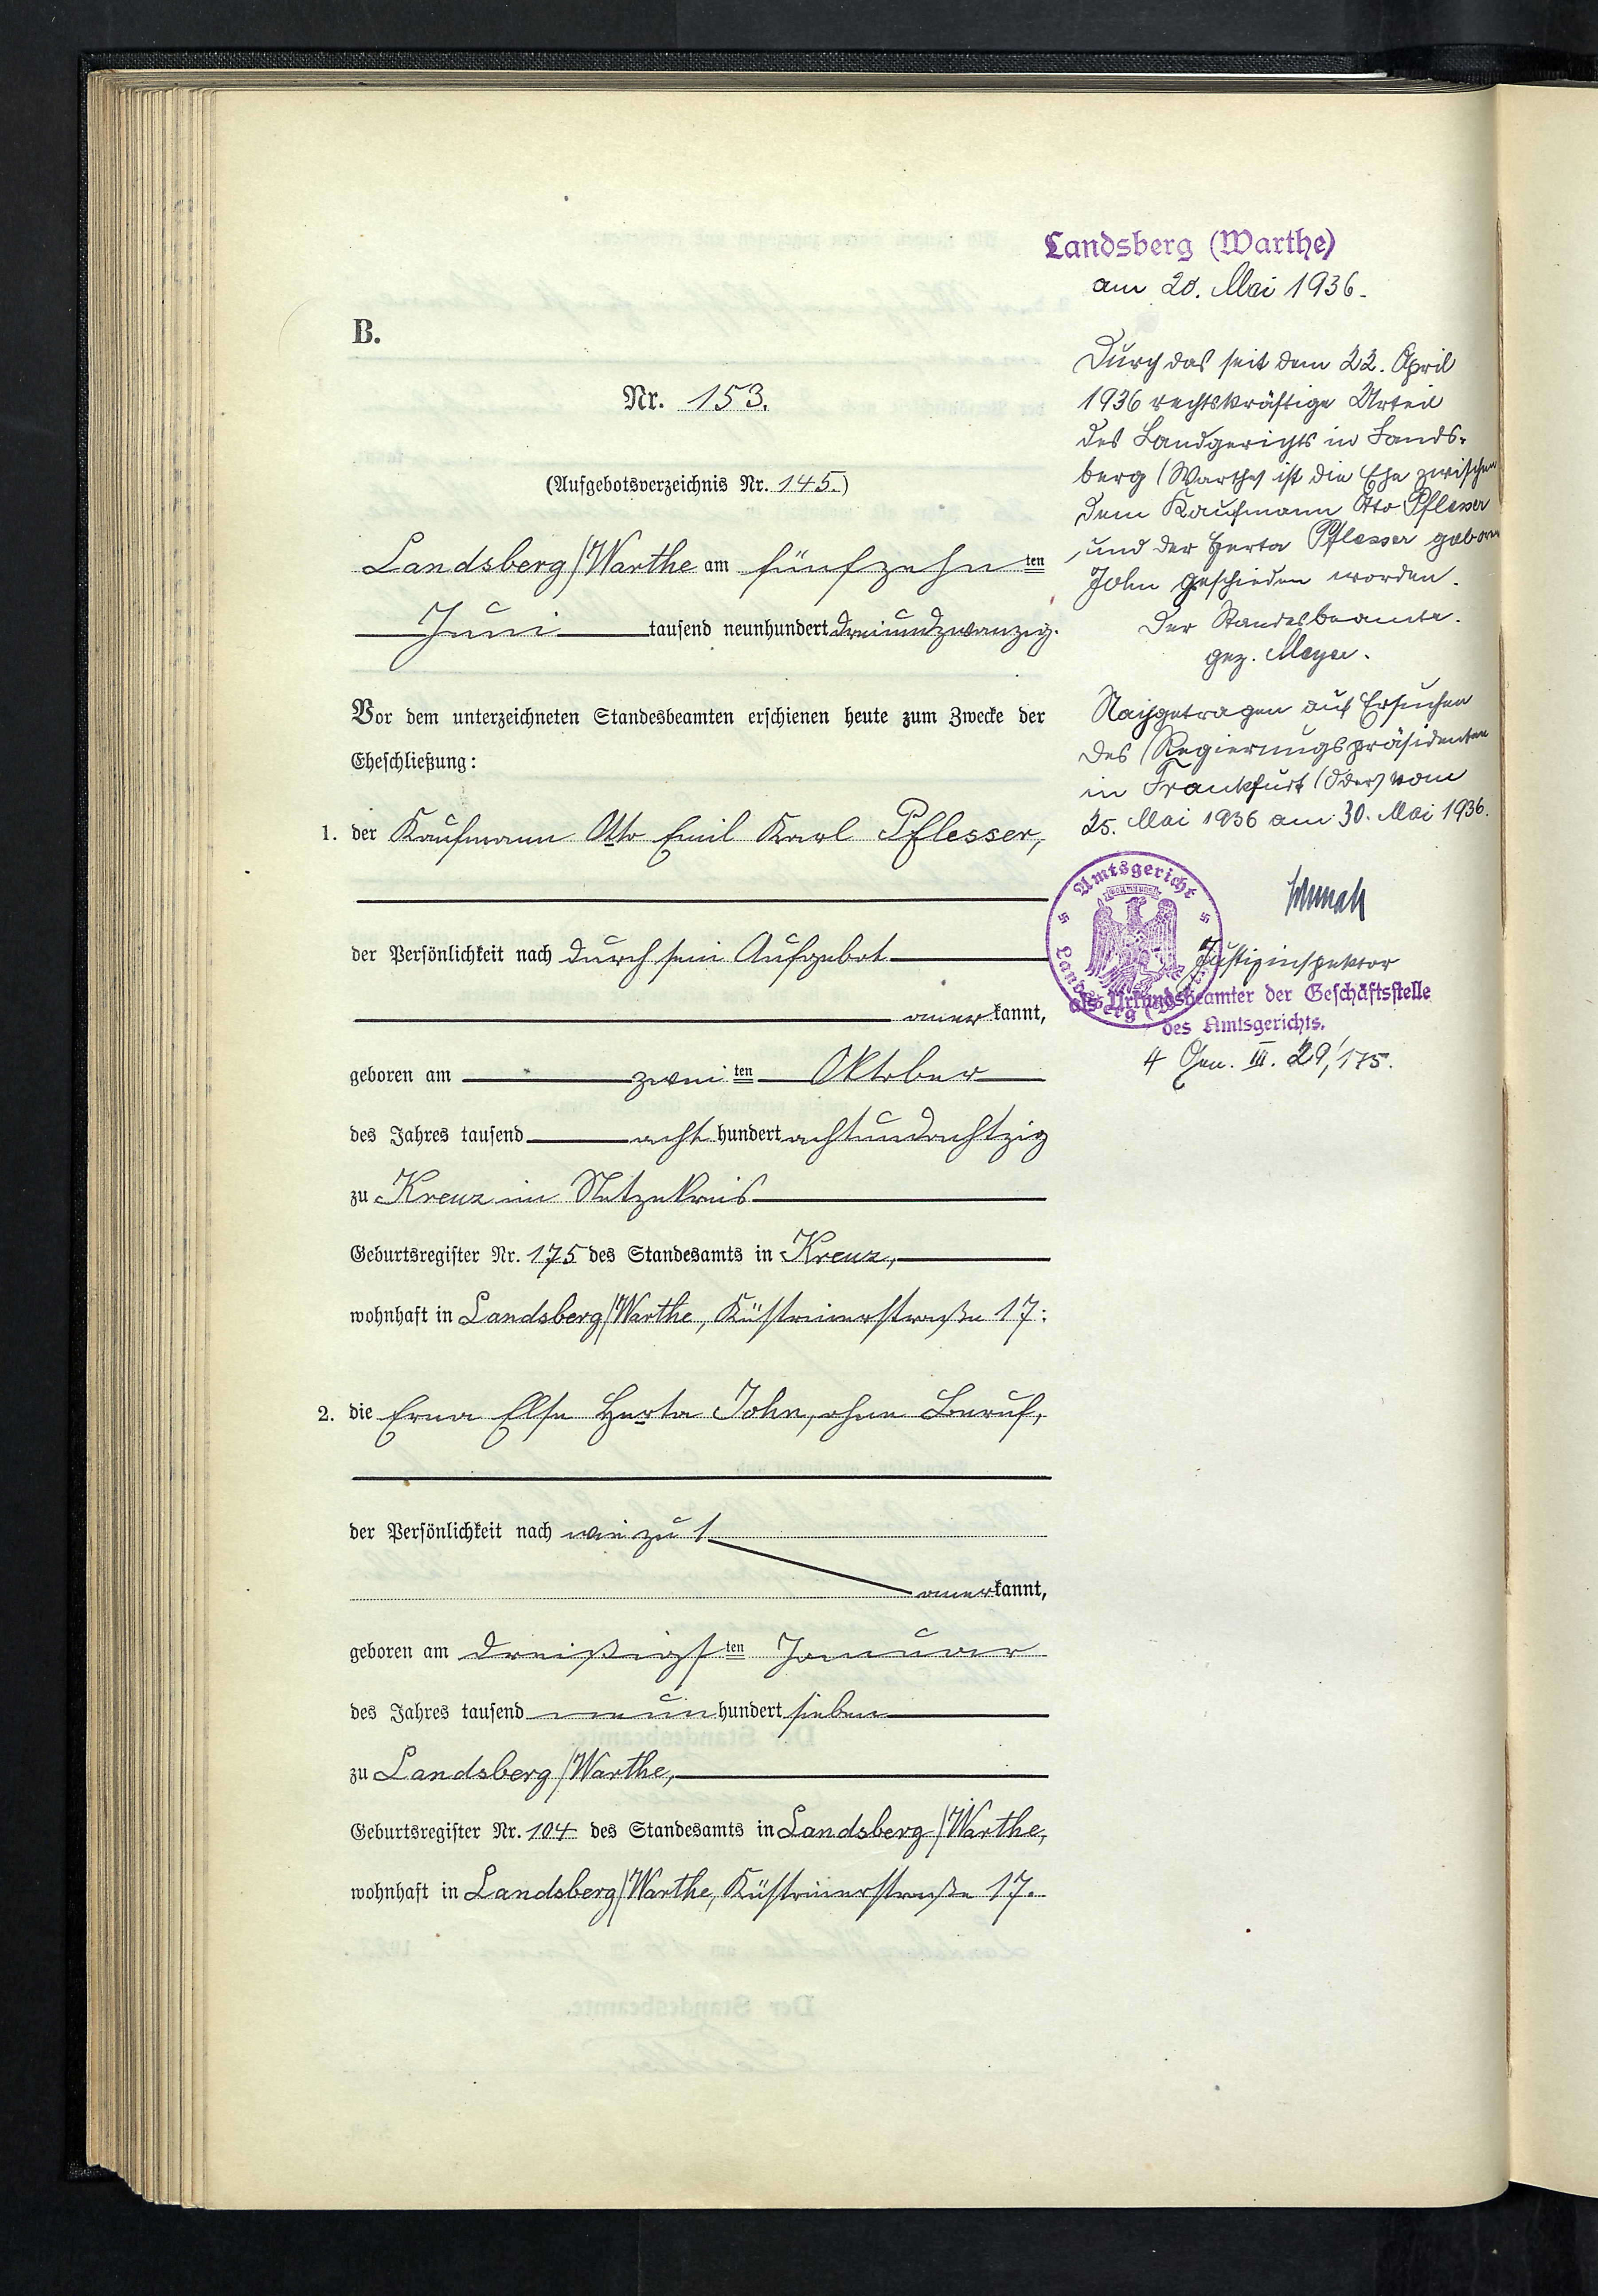 B.
Nr. 153.
(Aufgebotsverzeichnis Nr. 145.)
Landsberg/Warthe am fünfzehnten
Juni tausend neunhundert dreiundzwanzig.
Vor dem unterzeichneten Standesbeamten erschienen heute zum Zwecke der
Eheschließung:
1. der Kaufmann Otto Emil Karl Pflesser,
der Persönlichkeit nach durch sein Aufgebot
anerkannt,
geboren am zweiten Oktober
des Jahres tausend achthundert achtundachtzig
zu Kreuz im Netzekreis
Geburtsregister Nr. 175 des Standesamts in Kreuz,
wohnhaft in Landsberg/Warthe, Küstrinerstraße 17:
2. die Erna Else Herta John, ohne Beruf,
der Persönlichkeit nach wie zu 1
anerkannt,
geboren am dreißigsten Januar
des Jahres tausend neunhundert sieben
zu Landsberg/Warthe,
Geburtsregister Nr. 104 des Standesamts in Landsberg/Warthe,
wohnhaft in Landsberg/Warthe, Küstrinerstraße 17.
Landsberg (Warthe)
am 20. Mai 1936.
Durch das seit dem 22. April
1936 rechtskräftige Urteil
des Landgerichts in Lands-
berg (Warthe) ist die Ehe zwischen
dem Kaufmann Otto Pflesser
und der Herta Pflesser geboren
John geschieden worden.
Der Standesbeamte.
gez. Meyer.
Nachgetragen auf Ersuchen
des Regierungspräsidenten
in Frankfurt (Oder) vom
25. Mai 1936 am 30. Mai 1936.
Amtsgericht
Landsberg
Justizinspektor
als Urkundsbeamter der Geschäftsstelle
des Amtsgerichts.
4 Gen. III. 29,175.